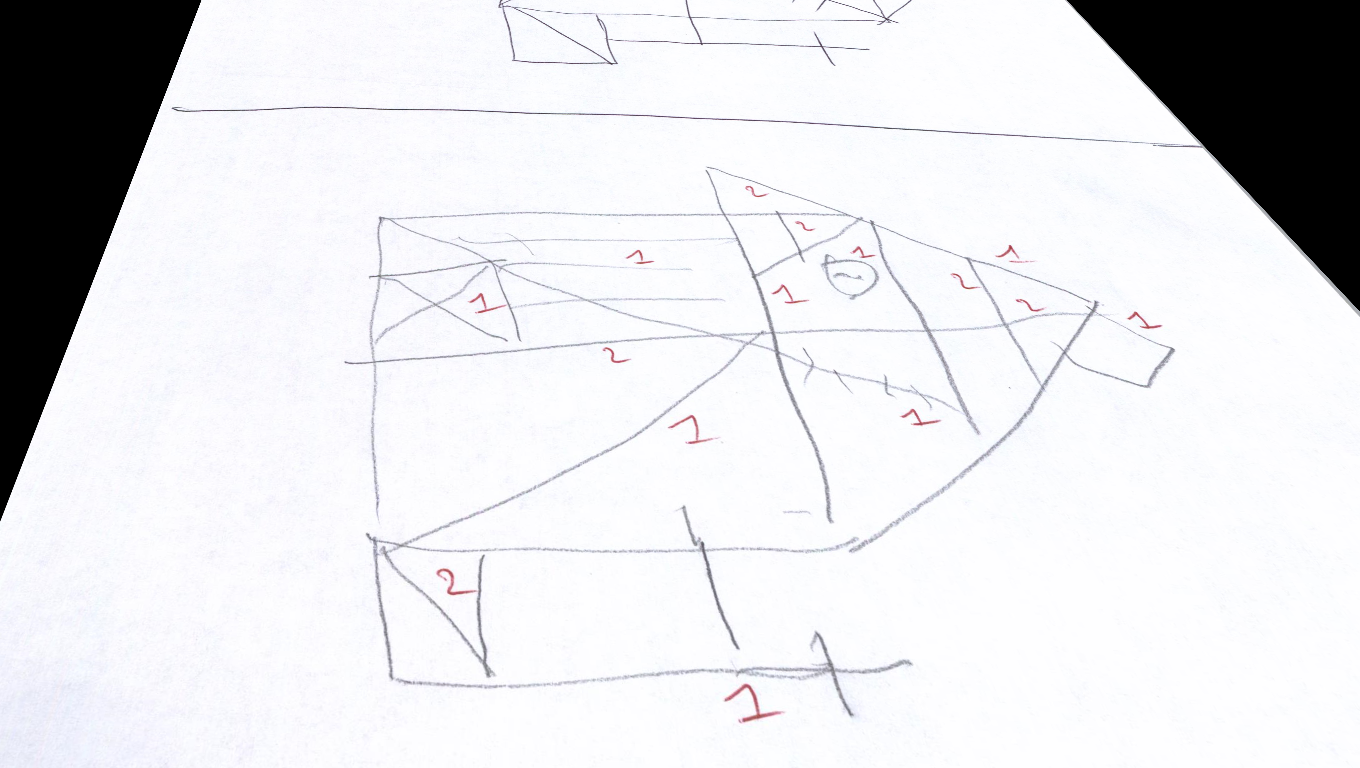 2
2
1
1
1
1
2
2
1
1
1
2
1
1
2
1